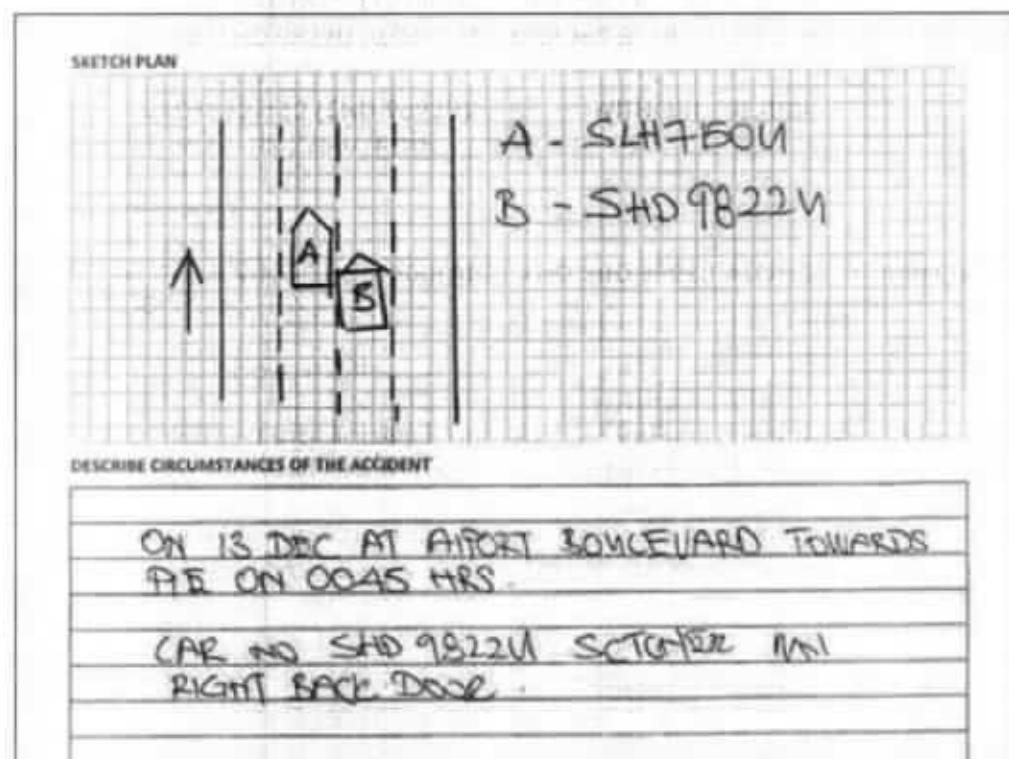 SKETCH PLAN
A - SLH750U
B - SHD 9822U
A
B
DESCRIBE CIRCUMSTANCES OF THE ACCIDENT
ON 13 DEC AT AIPORT BOULEVARD TOWARDS
PIE ON 0045 HRS.
CAR NO SHD 9822U
RIGHT BACK DOOR.